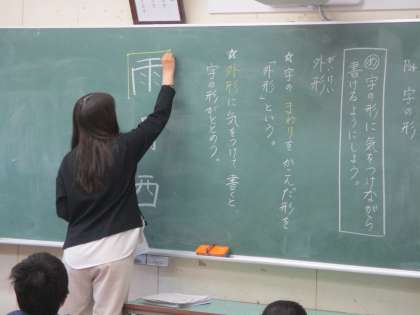 字の形
め 字の形に気をつけながら
書けるようにしよう。
がいけい
外形
☆字のまわりをかこんだ形を
「外形」という。
☆外形に気をつけて書くと
字の形がととのう。
雨
西